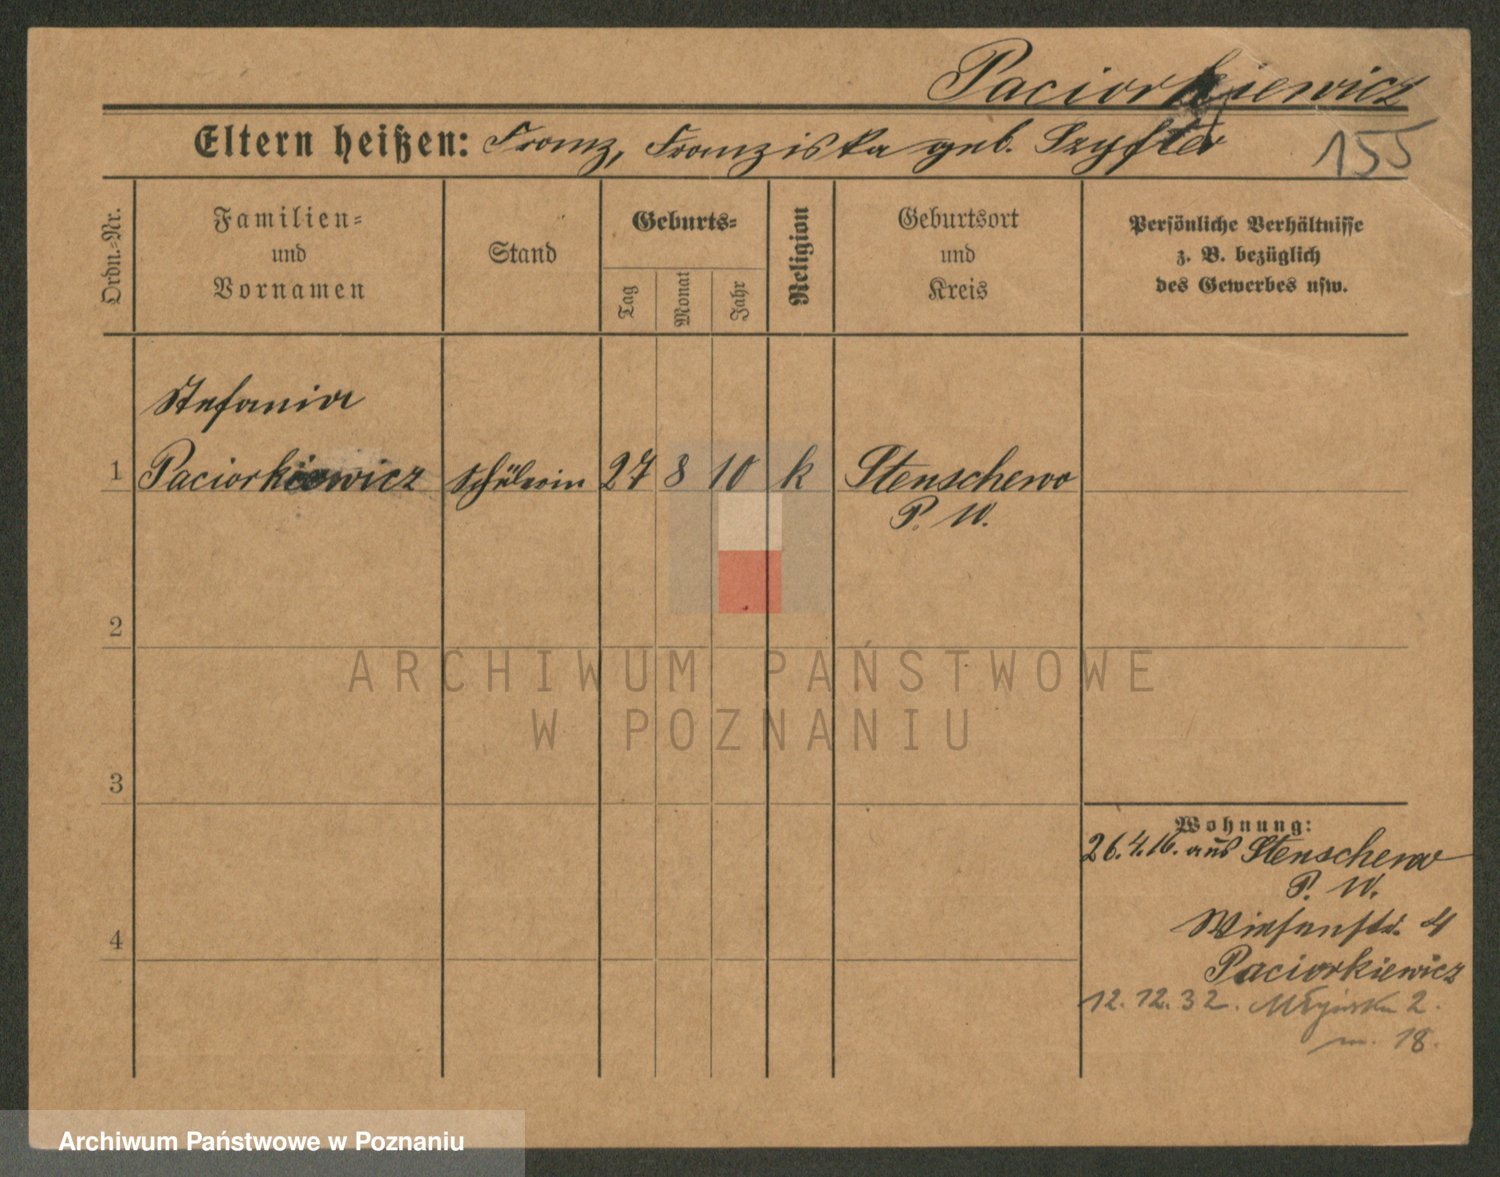 Paciorkiewicz
Eltern heißen: Franz, Franziska geb. Szyfter
155
Ordn.-Nr.
Familien-
und
Vornamen
Stand
Geburts-
Tag
Monat
Jahr
Religion
Geburtsort
und
Kreis
Persönliche Verhältnisse
z. B. bezüglich
des Gewerbes usw.
Stefania
1 Paciorkiewicz Schülerin 27 8 10 k Stenschewo
P. W.
2
ARCHIWUM PAŃSTWOWE
W POZNANIU
3
Wohnung:
26.4.16. aus Stenschewo
P. W.
Wiesenstr. 4
4
Paciorkiewicz
12.12.32. Młyńska 2.
m. 18.
Archiwum Państwowe w Poznaniu